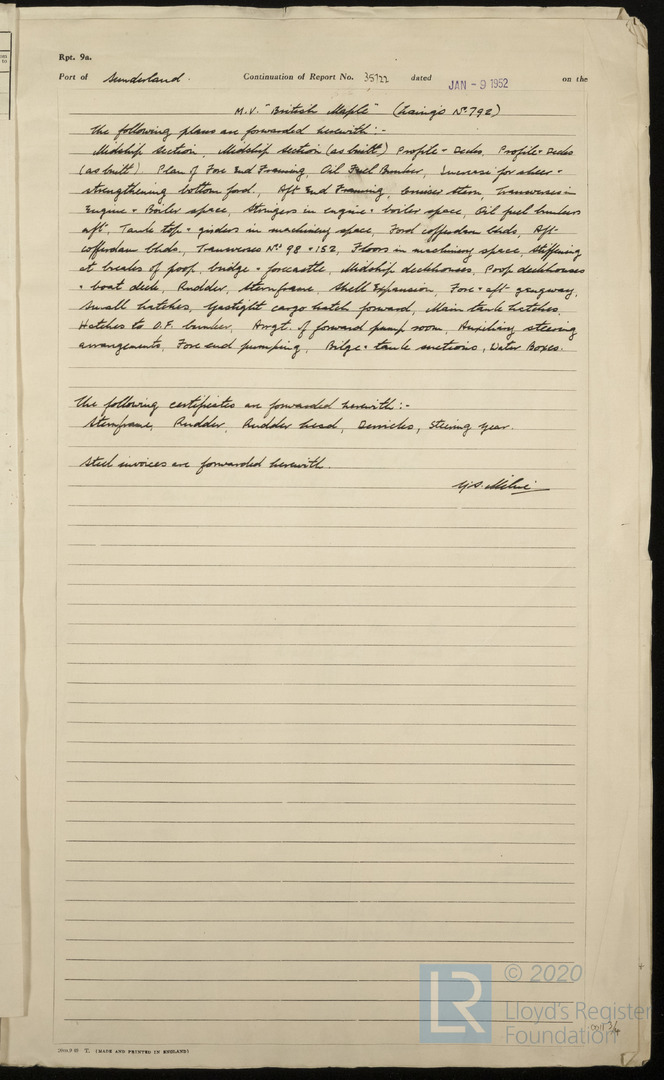 Rpt. 9a.
Port of Sunderland. Continuation of Report No. 35722 dated JAN - 9 1952 on the
M.V. "British Maple" (Laing's No 792)
The following plans are forwarded herewith :-
Midship section, Midship section (as built) Profile + Decks, Profile + Decks
(as built) Plan of Fore End Framing, Oil Fuel Bunker, Increase for sheer +
strengthening bottom ford, Aft End Framing, Cruiser stern, Transverses in
Engine + Boiler space, Stringers in engine + boiler space, Oil fuel bunkers
aft, Tank top + girders in machinery space, Ford cofferdam blhds, Aft
cofferdam blhds, Transverses Nos 98 + 152, Floors in machinery space, Stiffening
at breaks of poop, bridge + forecastle, Midship deckhouses, Poop deckhouses
+ boat deck, Rudder, Sternframe, Shell Expansion, Fore + aft gangway,
Small hatches, Gastight cargo hatch forward, Main tank hatches,
Hatches to O.F. bunker, Arrgt. of forward pump room, Auxiliary steering
arrangements, Fore end pumping, Bilge + tank suctions, Water Boxes.
The following certificates are forwarded herewith :-
Sternframe, Rudder, Rudder head, Derricks, Steering gear.
Steel invoices are forwarded herewith.
Milne
T. (MADE AND PRINTED IN ENGLAND)
LR
© 2020
Lloyd's Register
Foundation